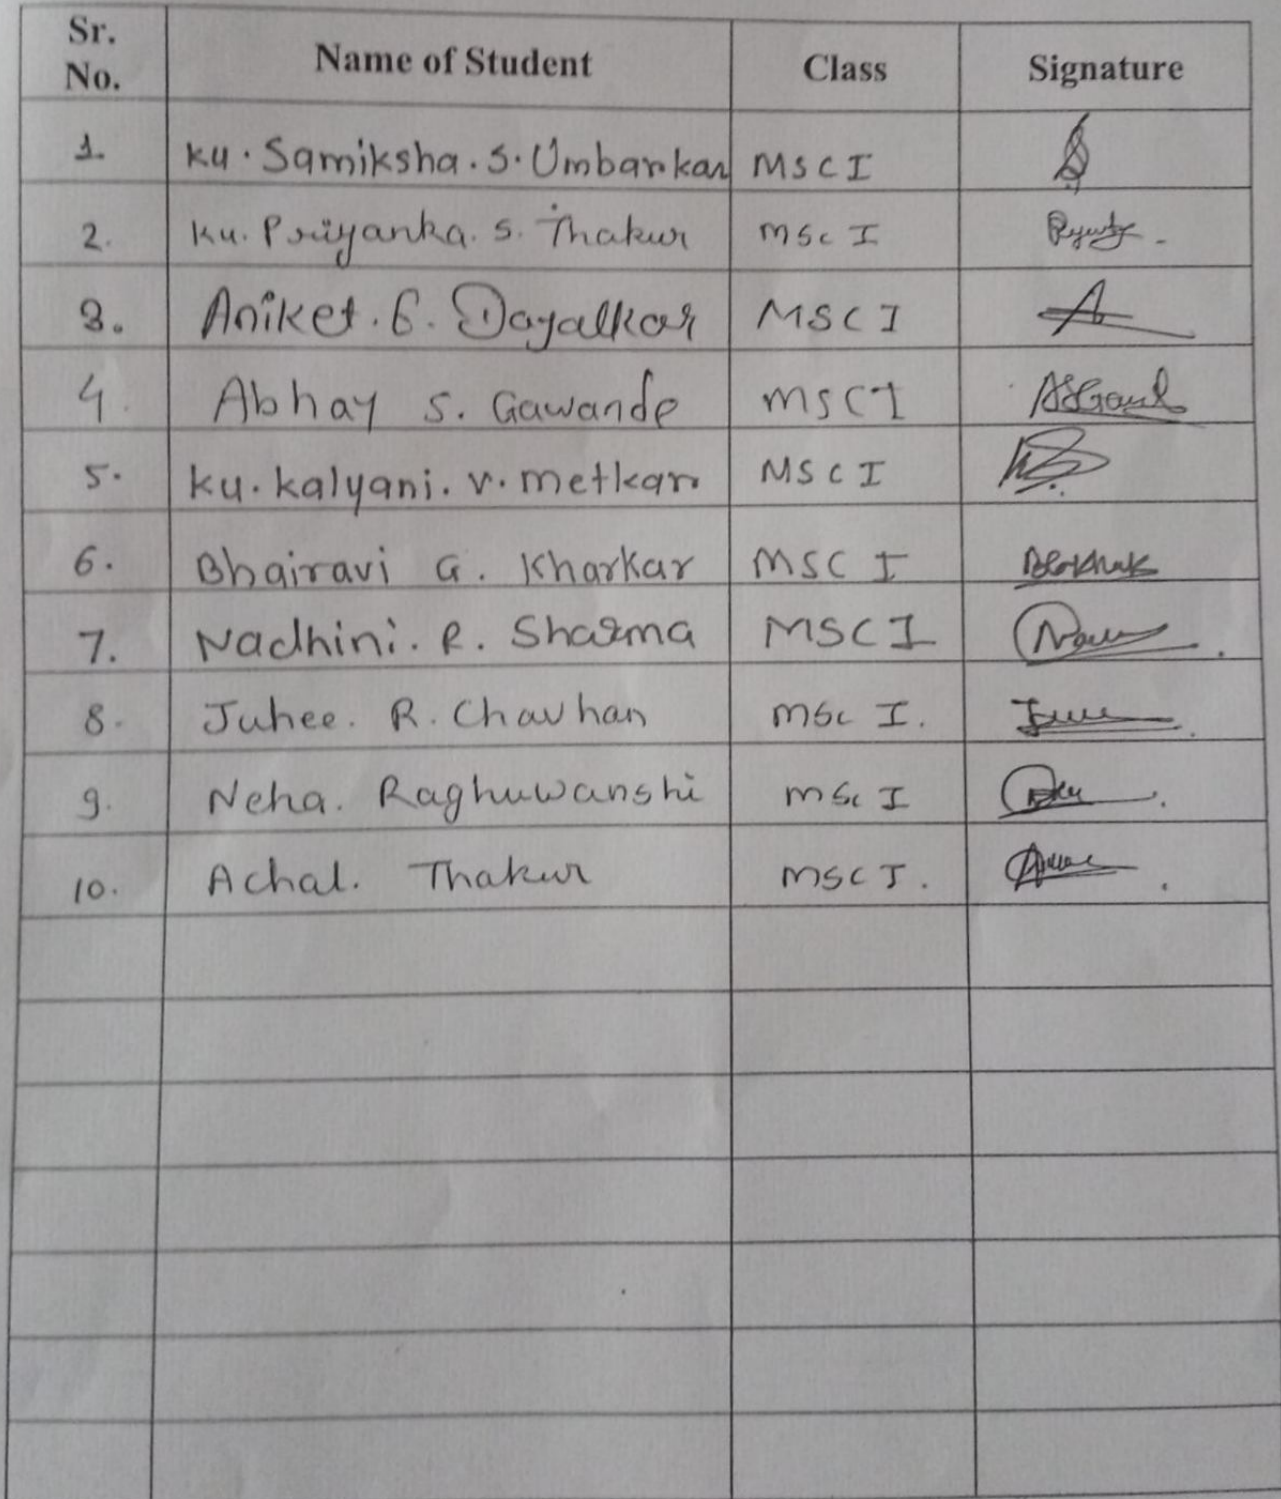 Sr. No. Name of Student Class Signature
1. Ku. Samiksha. S. Umbarkar MSC I
2. Ku. Priyanka. S. Thakur MSc I
3. Aniket. G. Dayalkar MSC I
4. Abhay S. Gawande MSC I
5. Ku. Kalyani. V. Metkar MSC I
6. Bhairavi G. Kharkar MSC I
7. Nadhini. R. Sharma MSC I
8. Juhee. R. Chavhan MSc I.
9. Neha. Raghuwanshi MSc I
10. Achal. Thakur MSC I.